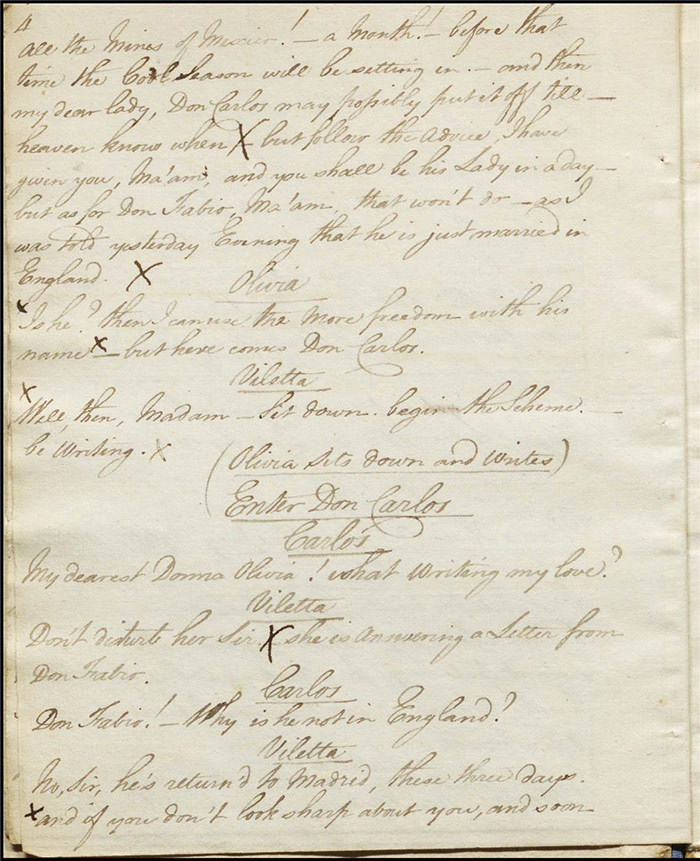 4
all the Mines of Mexico! – a Month! – before that
time the Cool Season will be setting in. – and then
my dear lady, Don Carlos may possibly put it off till –
heaven knows when X but follow the advice, I have
given you, Ma'am, and you shall be his Lady in a day –
but as for Don Fabio, Ma'am, that won't do – as I
was told yesterday Evening that he is just married in
England. X
Olivia
x Is he? then I can use the More freedom with his
name x – but here comes Don Carlos.
Viletta
x
Well, then, Madam – Sit down. begin the Scheme. –
be Writing. x
(Olivia sits down and Writes)
Enter Don Carlos
Carlos
My dearest Donna Olivia! what Writing my love?
Viletta
Don't disturb her Sir X she is Answering a Letter from
Don Fabio.
Carlos
Don Fabio! – Why is he not in England?
Viletta
No, Sir, he's return'd to Madrid, these three days.
x and if you don't look sharp about you, and soon